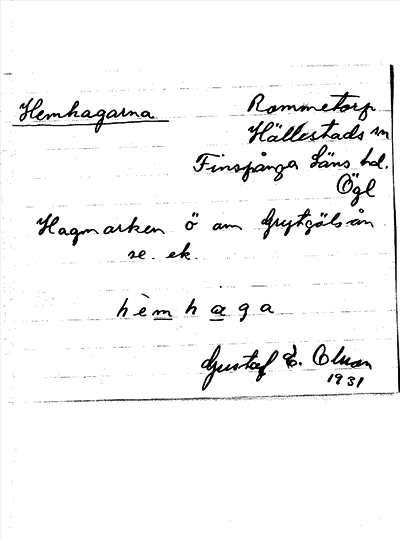 Hemhagarna
Rommetorp
Hällestads sn
Finspånga Läns hd.
Ögl
Hagmarken ö om Grytgölsån
se. ek.
hèmhaga
Gustaf E. Olson
1931